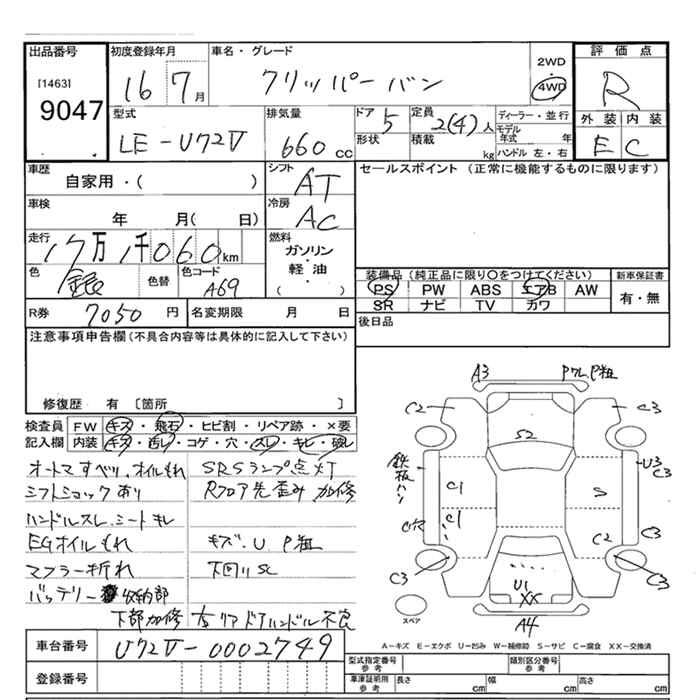 出品番号
[1463]
9047
初度登録年月
16 7月
車名・グレード
クリッパーバン
2WD
4WD
評価点
R
外装 内装
E C
型式
LE-U72V
排気量
660cc
ドア 5
形状
定員 2(4)人
積載 kg
ディーラー・並行
モデル年式 年
ハンドル 左・右
車歴
自家用・( )
シフト
AT
セールスポイント (正常に機能するものに限ります)
車検
年 月( 日)
冷房
AC
走行
17万1千060km
燃料
ガソリン
軽・油
( )
色
銀
色替
色コード
A69
装備品(純正品に限り○をつけてください)
新車保証書
PS PW ABS エアB AW
SR ナビ TV カワ
有・無
R券 7050円
名変期限 月 日
後日品
注意事項申告欄(不具合内容等は具体的に記入して下さい)
修復歴 有 〔箇所 〕
検査員
記入欄
FW キズ・飛石・ヒビ割・リペア跡・×要
内装 キズ・汚レ・コゲ・穴・スレ・キレ・破レ
オートマすべり、オイルもれ
シフトショックあり
ハンドルスレ、シートキレ
EGオイルもれ
マフラー折れ
バッテリー 収納部
下部加修
SRSランプ点灯
Rフロア先歪み加修
キズ、U、P粗
下回りSC
右リアドアハンドル不良
A3
Pクレ、P粗
C2
C3
S2
鉄板ハン
C1
S
U3
C3
C1
C2
C3
C3
C3
U1
XX
A4
スペア
A-キズ E-エクボ U-凹み W-補修跡 S-サビ C-腐食 XX-交換済
車台番号
U72V-0002749
登録番号
型式指定番号
参考
類別区分番号
参考
車庫証明用
参考
長さ cm
幅 cm
高さ cm